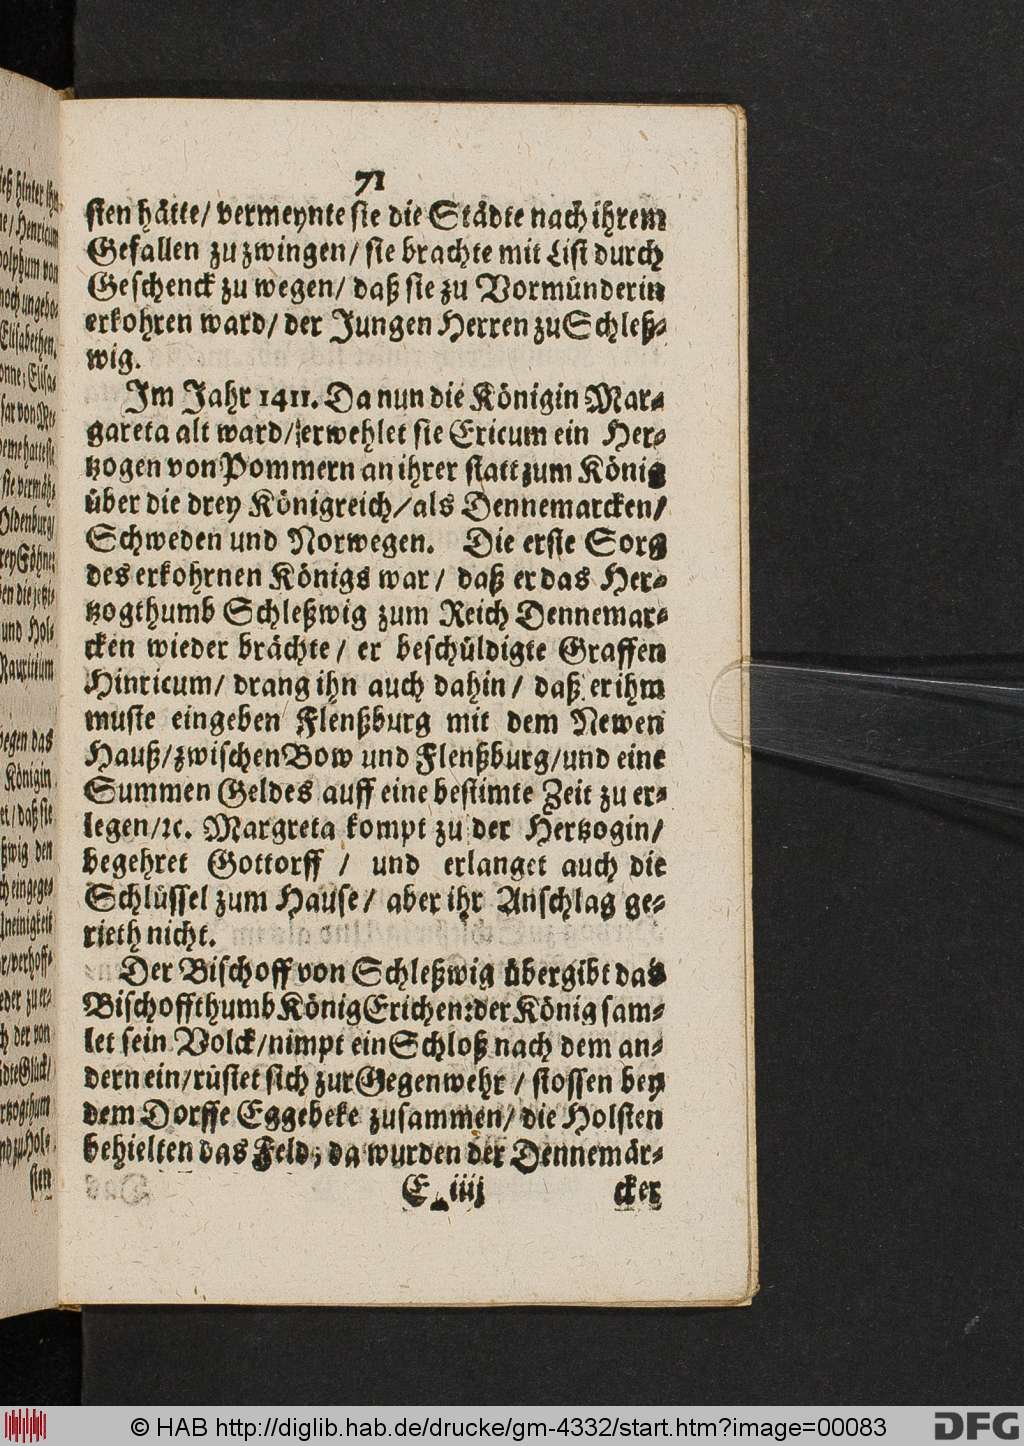 71
sten hätte/ vermeynte sie die Städte nach ihrem
Gefallen zu zwingen/ sie brachte mit List durch
Geschenck zu wegen/ daß sie zu Vormünderin
erkohren ward/ der Jungen Herren zu Schleß-
wig.
Im Jahr 1411. Da nun die Königin Mar-
gareta alt ward/ erwehlet sie Ericum ein Her-
tzogen von Pommern an ihrer statt zum König
über die drey Königreich/ als Dennemarcken/
Schweden und Norwegen. Die erste Sorg
des erkohrnen Königs war/ daß er das Her-
tzogthumb Schleßwig zum Reich Dennemar-
cken wieder brächte/ er beschüldigte Graffen
Hinricum/ drang ihn auch dahin/ daß er ihm
muste eingeben Flenßburg mit dem Newen
Hauß/ zwischen Bow und Flenßburg/ und eine
Summen Geldes auff eine bestimte Zeit zu er-
legen/ ꝛc. Margreta kompt zu der Hertzogin/
begehret Gottorff / und erlanget auch die
Schlüssel zum Hause/ aber ihr Anschlag ge-
rieth nicht.
Der Bischoff von Schleßwig übergibt das
Bischoffthumb König Erichen: der König sam-
let sein Volck/ nimpt ein Schloß nach dem an-
dern ein/ rüstet sich zur Gegenwehr / stossen bey
dem Dorffe Eggebeke zusammen/ die Holsten
behielten das Feld; da wurden der Dennemär-
E iiij cker
hinter
Henricum
von
Elisabethen.
von
sie vermäh-
Oldenburg/
und Hol-
Mauritium
das
Königin
daß sie
den
der von
Glück/
sten
© HAB http://diglib.hab.de/drucke/gm-4332/start.htm?image=00083
DFG